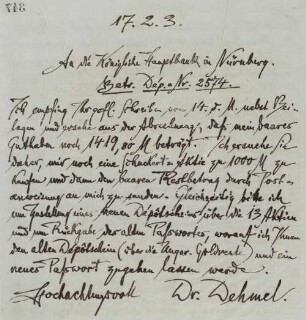 17.2.3.
An die Königliche Hauptbank in Nürnberg.
Betr. Dép. Nr. 2574.
Ich empfing Ihr gefl. Schreiben vom 14. d. M. nebst Bei-
lagen und ersehe aus der Abrechnung, daß mein baares
Guthaben noch 1419,80 M beträgt. Ich ersuche Sie
daher, mir noch eine Aktie zu 1000 M zu
kaufen und dann den baaren Restbetrag durch Post-
anweisung an mich zu senden. Gleichzeitig bitte ich
um Zustellung eines neuen Dépôtscheins über die 13 Aktien
und um Rückgabe des alten Passwortes, worauf ich Ihnen
den alten Dépôtschein (über die Ungar. Goldrente) und ein
neues Passwort zugehen lassen werde.
Hochachtungsvoll Dr. Dehmel.